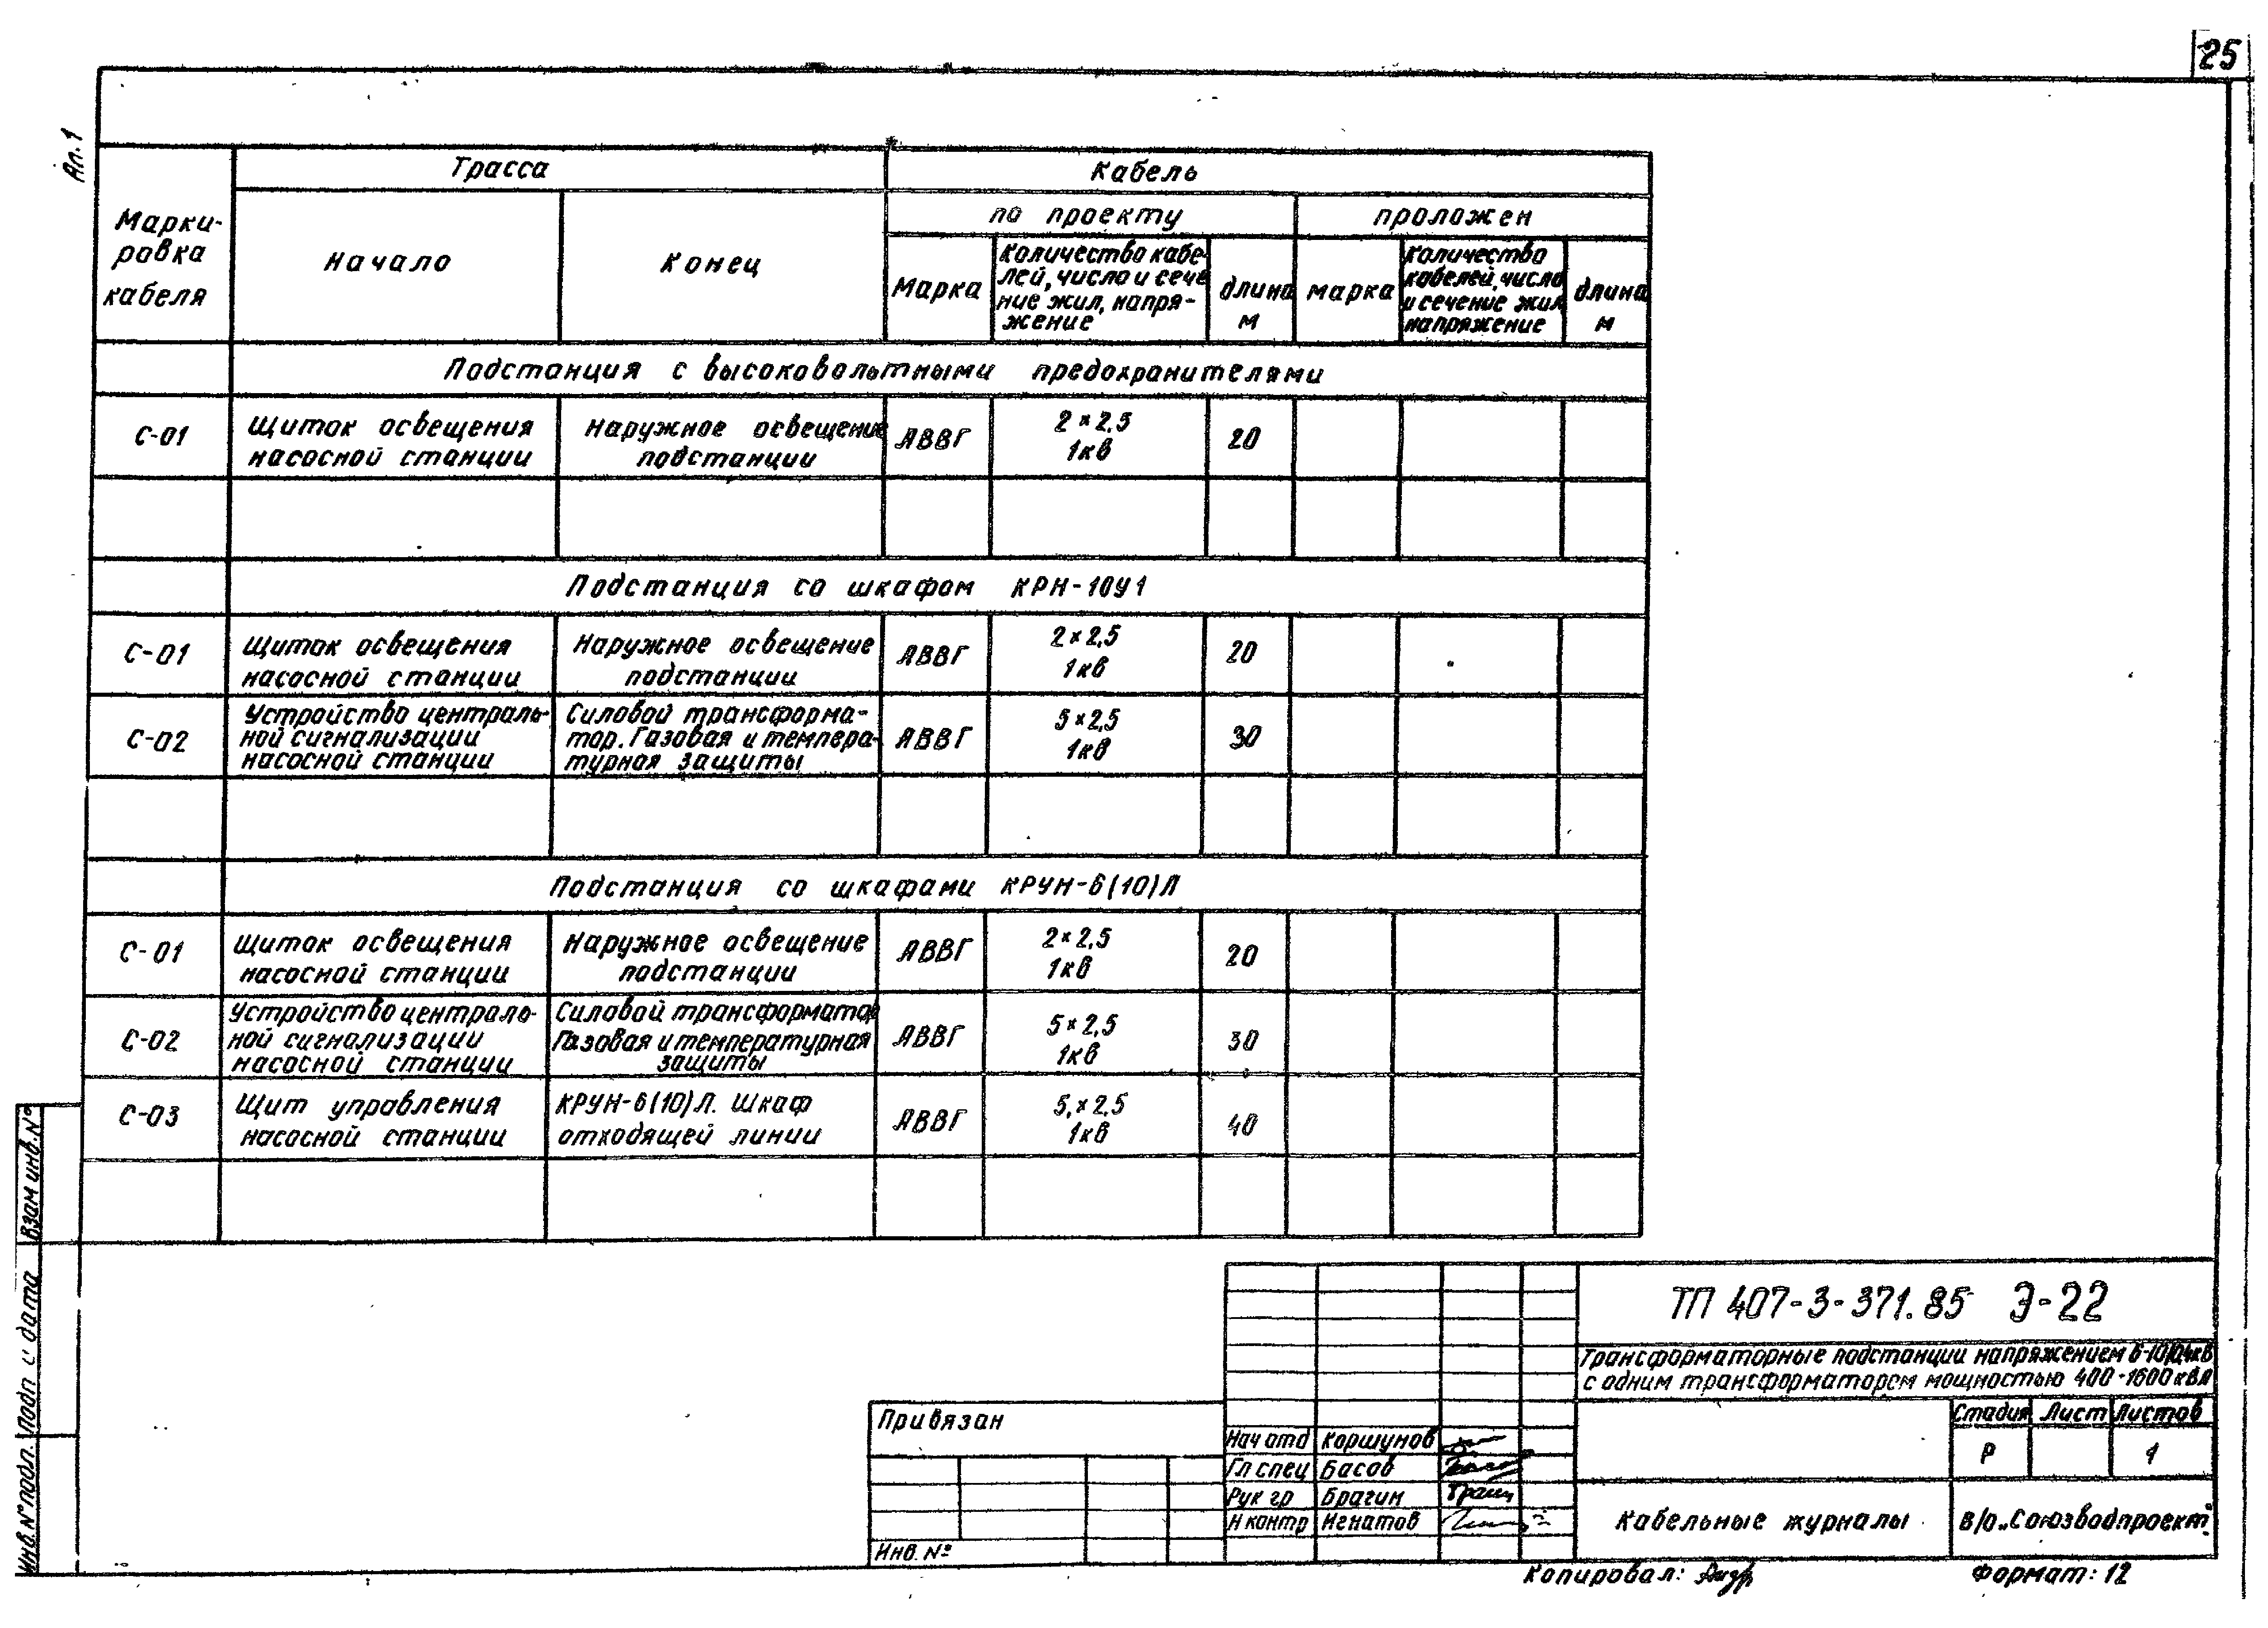 25
Ал.1
Марки-
ровка
кабеля
Трасса
Кабель
Начало
Конец
по проекту
проложен
Марка
Количество кабе-
лей, число и сече
ние жил, напря-
жение
длина
м
марка
Количество
кабелей, число
и сечение жил
напряжение
длина
м
Подстанция с высоковольтными предохранителями
С-01
Щиток освещения
насосной станции
Наружное освещение
подстанции
АВВГ
2×2,5
1кв
20
Подстанция со шкафом КРН-10У1
С-01
Щиток освещения
насосной станции
Наружное освещение
подстанции
АВВГ
2×2,5
1кв
20
С-02
Устройство централь-
ной сигнализации
насосной станции
Силовой трансформа-
тор. Газовая и темпера-
турная защиты
АВВГ
5×2,5
1кв
30
Подстанция со шкафами КРУН-6(10)Л
С-01
Щиток освещения
насосной станции
Наружное освещение
подстанции
АВВГ
2×2,5
1кв
20
С-02
Устройство централь-
ной сигнализации
насосной станции
Силовой трансформатор
Газовая и температурная
защиты
АВВГ
5×2,5
1кв
30
С-03
Щит управления
насосной станции
КРУН-6(10)Л. Шкаф
отходящей линии
АВВГ
5×2,5
1кв
40
Взам инв. №
Подп и дата
Инв. № подл.
ТП 407-3-371.85 Э-22
Трансформаторные подстанции напряжением 6-10/0,4кВ
с одним трансформатором мощностью 400-1600 кВА
Стадия Лист Листов
Р 1
Привязан
Инв. №
Нач отд Коршунов
Гл спец Басов
Рук гр Брагин
Н контр Игнатов
Кабельные журналы
В/О „Союзводпроект"
Копировал:
Формат: 12